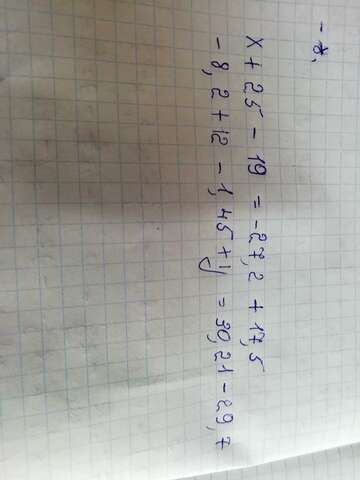 x + 25 - 19 = -27,2 + 17,5
- 8,2 + 12 - 1,45 + y = 30,21 - 29,7